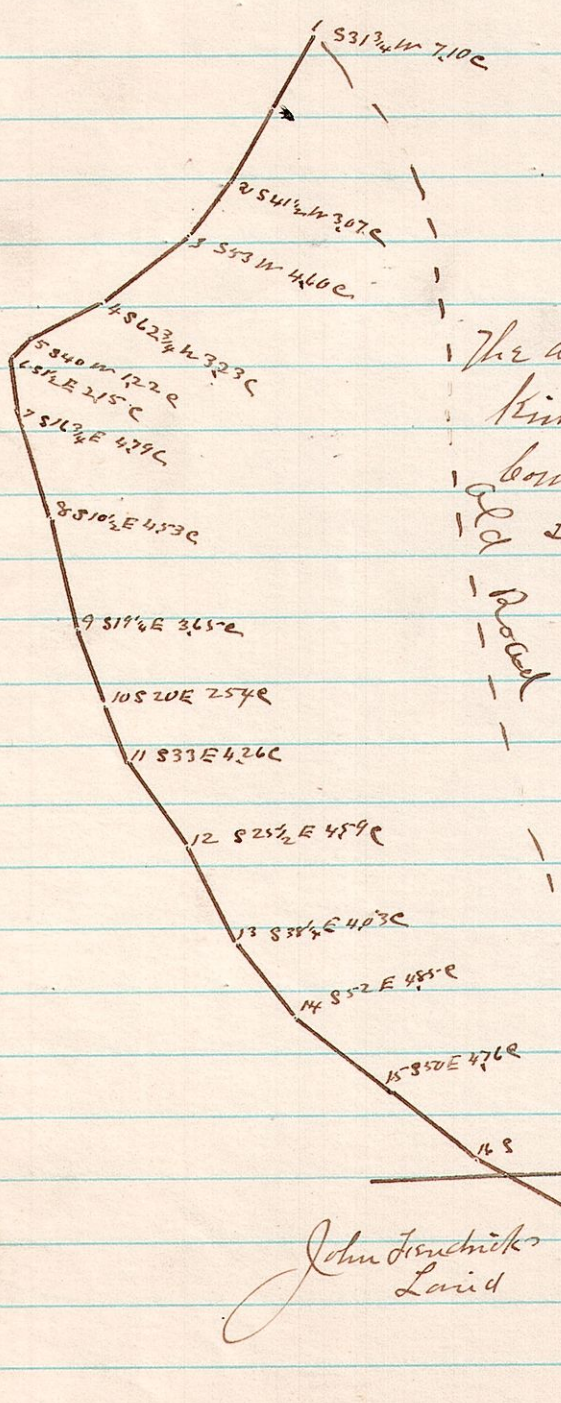 1 S31¾W 7.10C
2 S41½W 3.07C
3 S53W 4.60C
The a
4 S62¾W 3.23C
5 S40W 1.22C
6 S½E 2.15C
Kin
7 S16¾E 4.79C
bou
Old Road
8 S10½E 4.53C
9 S19¼E 3.65C
10 S20E 2.54C
11 S33E 4.26C
12 S25½E 4.59C
13 S38¼E 4.03C
14 S52E 4.85C
15 S50E 4.76C
16 S
John Hendricks
Land